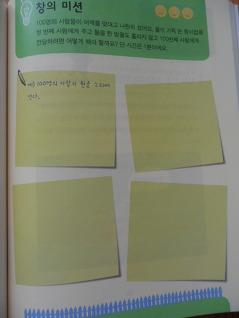 창의 미션
100명의 사람들이 어깨를 맞대고 나란히 섰어요. 물이 가득 든 종이컵을
첫 번째 사람에게 주고 물을 한 방울도 흘리지 않고 100번째 사람에게
전달하려면 어떻게 해야 할까요? 단 시간은 1분이에요.
예) 100명의 사람이 원을 그리며
선다.